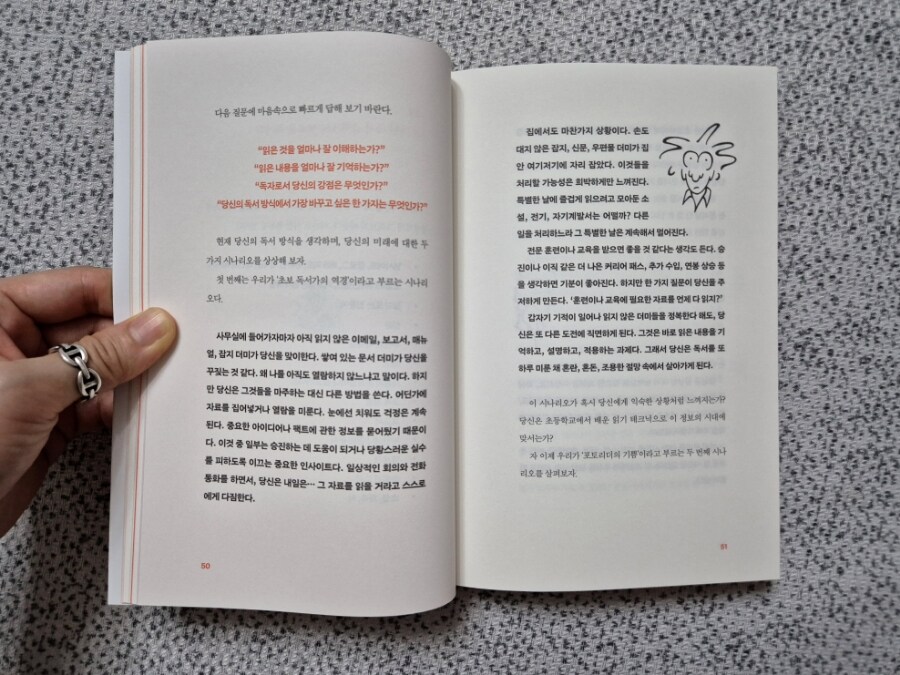 다음 질문에 마음속으로 빠르게 답해 보기 바란다.
“읽은 것을 얼마나 잘 이해하는가?”
“읽은 내용을 얼마나 잘 기억하는가?”
“독자로서 당신의 강점은 무엇인가?”
“당신의 독서 방식에서 가장 바꾸고 싶은 한 가지는 무엇인가?”
현재 당신의 독서 방식을 생각하며, 당신의 미래에 대한 두
가지 시나리오를 상상해 보자.
첫 번째는 우리가 ‘초보 독서가의 역경’이라고 부르는 시나리
오다.
사무실에 들어가자마자 아직 읽지 않은 이메일, 보고서, 매뉴
얼, 잡지 더미가 당신을 맞이한다. 쌓여 있는 문서 더미가 당신을
꾸짖는 것 같다. 왜 나를 아직도 열람하지 않느냐고 말이다. 하지
만 당신은 그것들을 마주하는 대신 다른 방법을 쓴다. 어딘가에
자료를 집어넣거나 열람을 미룬다. 눈에선 치워도 걱정은 계속
된다. 중요한 아이디어나 팩트에 관한 정보를 묻어뒀기 때문이
다. 이것 중 일부는 승진하는 데 도움이 되거나 당황스러운 실수
를 피하도록 이끄는 중요한 인사이트다. 일상적인 회의와 전화
통화를 하면서, 당신은 내일은… 그 자료를 읽을 거라고 스스로
에게 다짐한다.
50
집에서도 마찬가지 상황이다. 손도
대지 않은 잡지, 신문, 우편물 더미가 집
안 여기저기에 자리 잡았다. 이것들을
처리할 가능성은 희박하게만 느껴진다.
특별한 날에 즐겁게 읽으려고 모아둔 소
설, 전기, 자기계발서는 어떨까? 다른
일을 처리하느라 그 특별한 날은 계속해서 멀어진다.
전문 훈련이나 교육을 받으면 좋을 것 같다는 생각도 든다. 승
진이나 아직 같은 더 나은 커리어 패스, 추가 수입, 연봉 상승 등
을 생각하면 기분이 좋아진다. 하지만 한 가지 질문이 당신을 주
저하게 만든다. ‘훈련이나 교육에 필요한 자료를 언제 다 읽지?’
갑자기 기적이 일어나 읽지 않은 더미들을 정복한다 해도, 당
신은 또 다른 도전에 직면하게 된다. 그것은 바로 읽은 내용을 기
억하고, 설명하고, 적용하는 과제다. 그래서 당신은 독서를 또
하루 미룬 채 혼란, 혼돈, 조용한 절망 속에서 살아가게 된다.
이 시나리오가 혹시 당신에게 익숙한 상황처럼 느껴지는가?
당신은 초등학교에서 배운 읽기 테크닉으로 이 정보의 시대에
맞서는가?
자 이제 우리가 ‘포토리더의 기쁨’이라고 부르는 두 번째 시나
리오를 살펴보자.
51